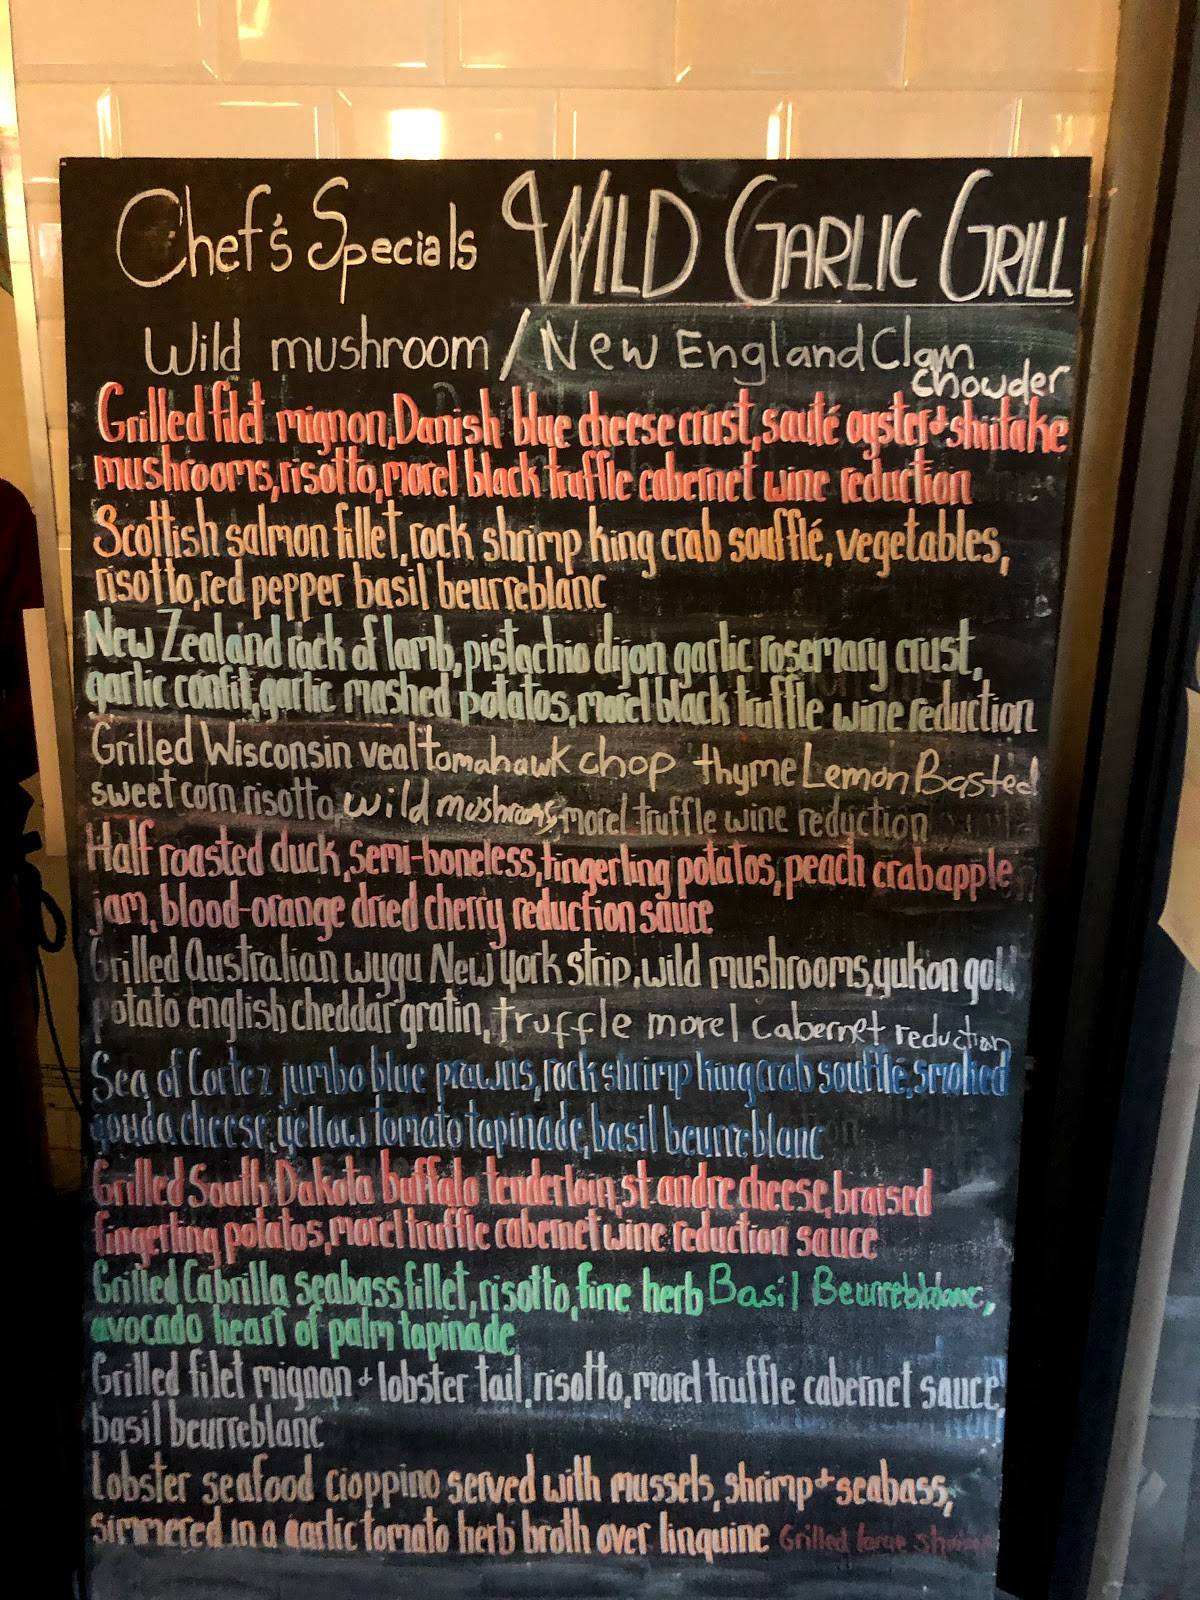 Chef's Specials WILD GARLIC GRILL
Wild mushroom / New England Clam
chowder
Grilled filet mignon, Danish blue cheese crust, sauté oyster + shiitake
mushrooms, risotto, morel black truffle cabernet wine reduction
Scottish salmon fillet, rock shrimp king crab soufflé, vegetables,
risotto, red pepper basil beurreblanc
New Zealand rack of lamb, pistachio dijon garlic rosemary crust,
garlic confit, garlic mashed potatos, morel black truffle wine reduction
Grilled Wisconsin veal tomahawk chop thyme Lemon Basted
sweet corn risotto, wild mushroms, morel truffle wine reduction
Half roasted duck, semi-boneless, fingerling potatos, peach crabapple
jam, blood-orange dried cherry reduction sauce
Grilled Australian wygu New York strip, wild mushrooms, yukon gold
potato english cheddar gratin, truffle morel cabernet reduction
Sea of Cortez jumbo blue prawns, rock shrimp king crab soufflé, smoked
gouda cheese, yellow tomato tapinade, basil beurreblanc
Grilled South Dakota buffalo tenderloin, st. andre cheese, braised
fingerling potatos, morel truffle cabernet wine reduction sauce
Grilled Cabrilla seabass fillet, risotto, fine herb Basil Beurreblanc,
avocado heart of palm tapinade
Grilled filet mignon + lobster tail, risotto, morel truffle cabernet sauce,
basil beurreblanc
Lobster seafood cioppino served with mussels, shrimp + seabass,
simmered in a garlic tomato herb broth over linguine Grilled large